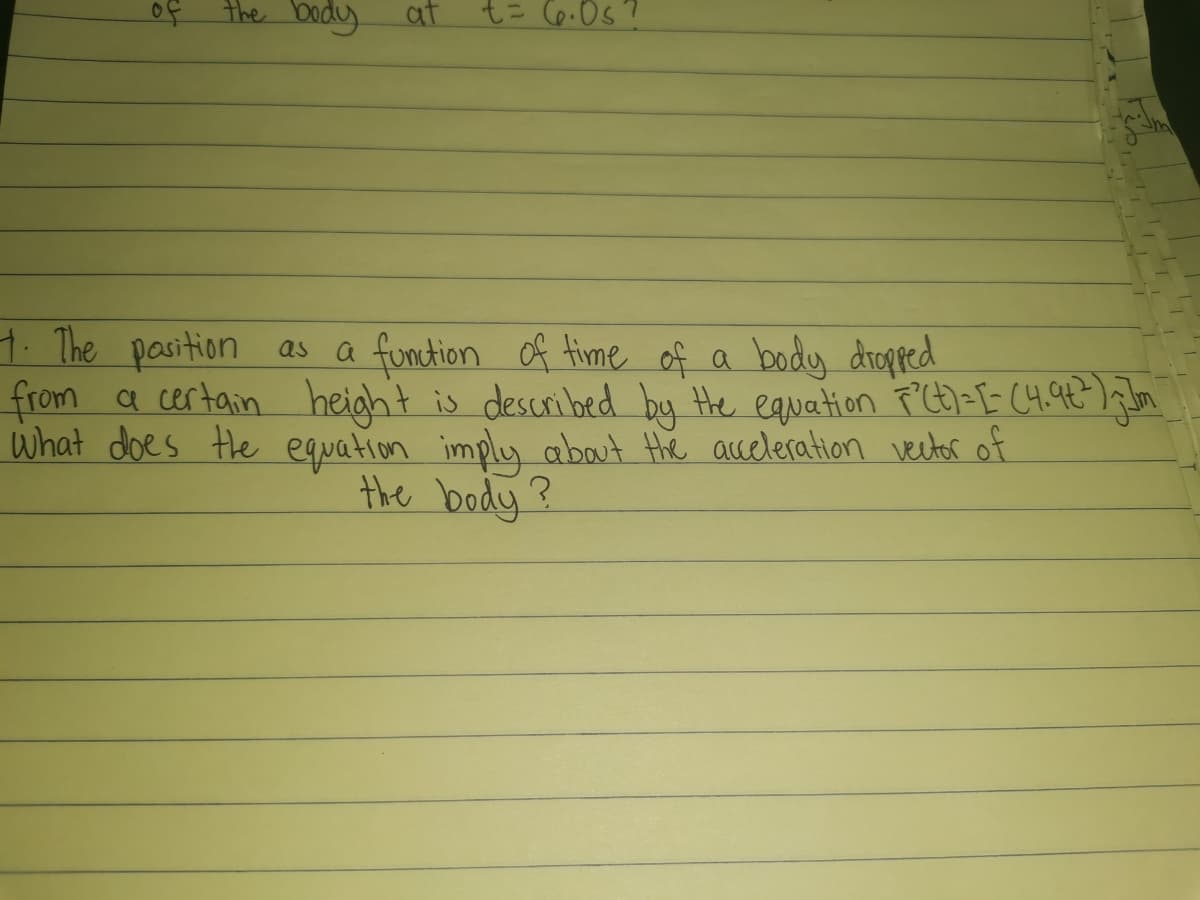 of the body at t = 6.0s?
ĵ]m
1. The position as a function of time of a body dropped
from a certain height is described by the equation r⃗(t)=[-(4.9t²)ĵ]m
What does the equation imply about the acceleration vector of
the body?